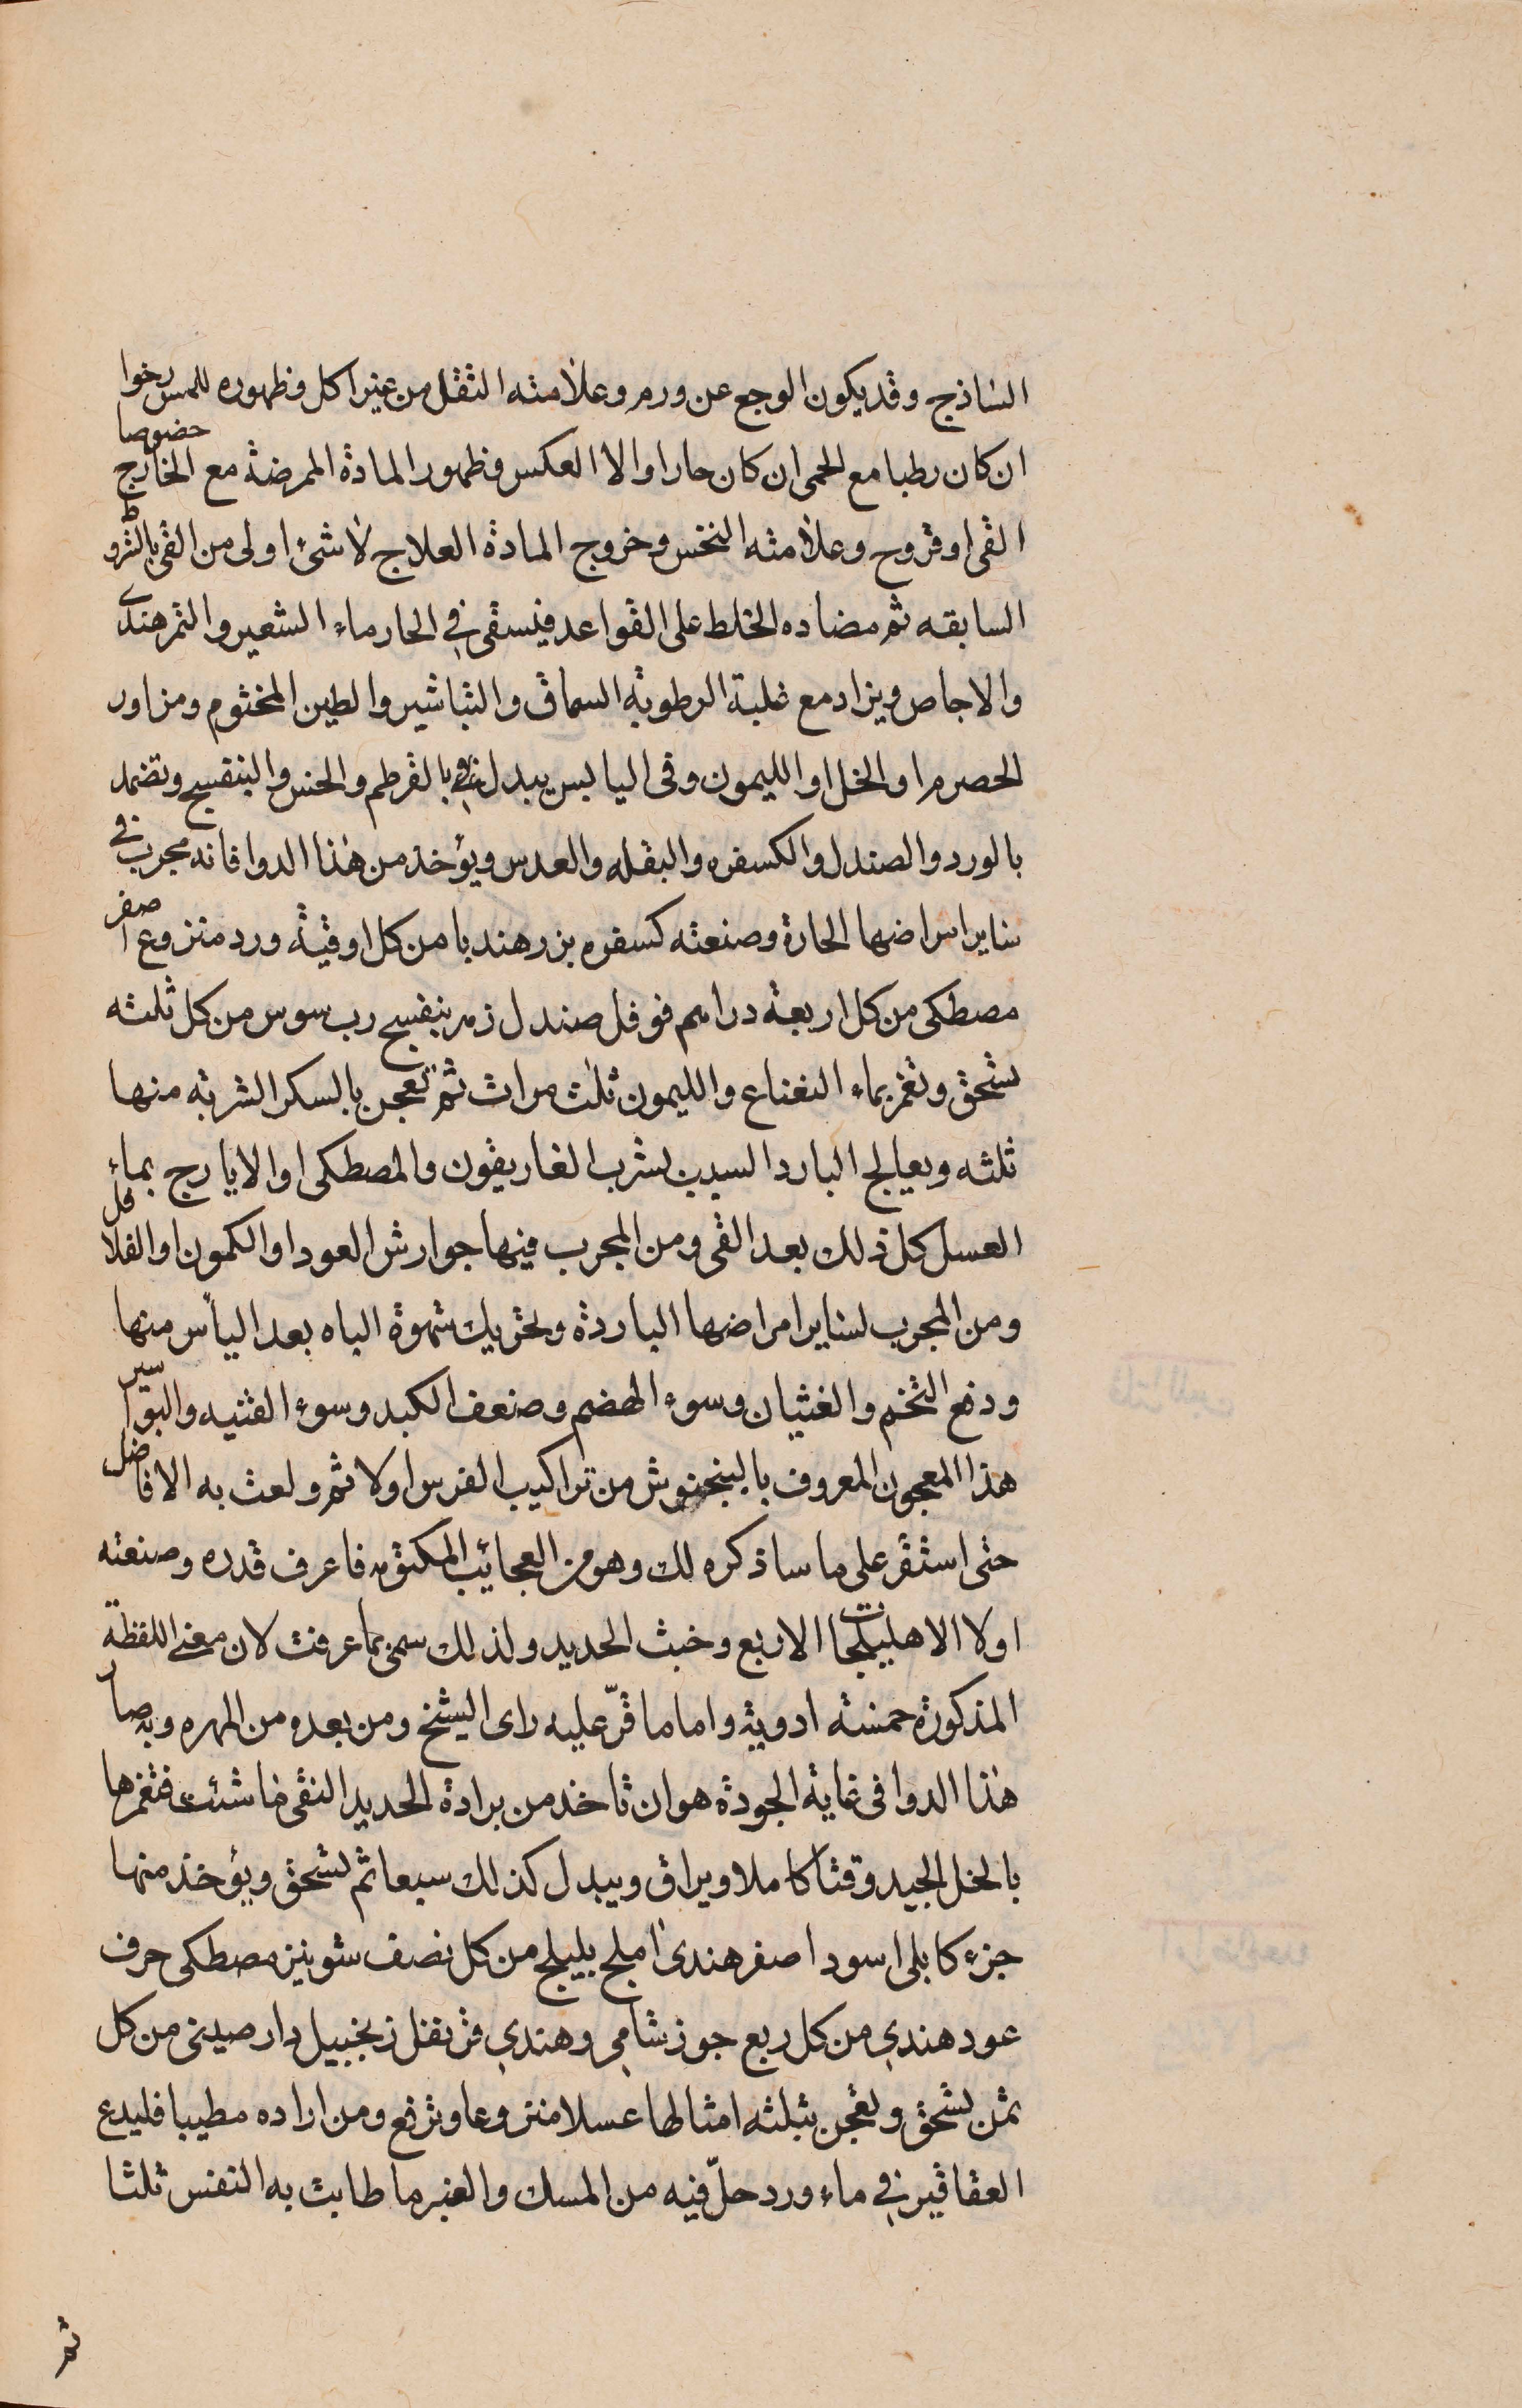 الساذج وقد يكون الوجع عن ورم وعلامته الثقل من غير اكل وظهوره للمس رخوا
ان كان رطبا مع الحمى ان كان حارا والا العكس وظهور المادة الممرضة مع الخارج خصوصا
القى اوقروح وعلامته النخس وخروج المادة العلاج لاشئ اولى من القى بالشروط
السابقه ثم مضاده الخلط على القواعد فيسقى في الحار ماء الشعير والتمر هندى
والاجاص ويزاد مع غلبة الرطوبة السماق والتباشير والطين المختوم ومزاور
الحصرم او الخل او الليمون وفى اليابس يبدل بالقرطم والخس والبنفسج وتضمد
بالورد والصندل والكسفره والبقله والعدس ويؤخذ من هذا الدوا فانه مجرب في
ساير امراضها الحارة وصنعته كسفره بزر هندبا من كل اوقية ورد منزوع اصفر
مصطكى من كل اربعة دراهم فوفل صندل زهر بنفسج رب سوس من كل ثلثه
تسحق وتغمر بماء النعناع والليمون ثلث مرات ثم تعجن بالسكر الشربه منها
ثلثه ويعالج البارد السبب بشرب الغاريقون والمصطكى او الايارج بماء
العسل كل ذلك بعد القى ومن المجرب فيها جوارش العود او الكمون او الفلافل
ومن المجرب لساير امراضها الباردة وتحريك شهوة الباه بعد اليأس منها
ودفع التخم والغثيان وسوء الهضم وضعف الكبد وسوء القنيه والبواسير
هذا المعجون المعروف بالبنجنوش من تراكيب الفرس اولا ثم ولعت به الافاضل
حتى استقر على ما ساذكره لك وهو من العجائب المكتومه فاعرف قدره وصنعته
اولا الاهليلجات الاربع وخبث الحديد ولذلك سمى بما عرفت لان معنى اللفظة
المذكورة خمسة ادوية واما ما قرّ عليه راى الشيخ ومن بعده من المهره وبه صار
هذا الدوا فى غاية الجودة هو ان تاخذ من برادة الحديد النقى ما شئت فتغمرها
بالخل الجيد وقتا كاملا ويراق ويبدل كذلك سبعا ثم تسحق ويؤخذ منها
جزء كابلى اسود اصفر هندى املج بليلج من كل نصف شونيز مصطكى حرف
عود هندي من كل ربع جوز شامي وهندي قرنفل زنجبيل دار صينى من كل
ثمن تسحق وتعجن بثلثه امثالها عسلا منزوعا وترفع ومن اراده مطيبا فليدع
العقاقير في ماء ورد حلّ فيه من المسك والعنبر ما طابت به النفس ثلثا
ثم